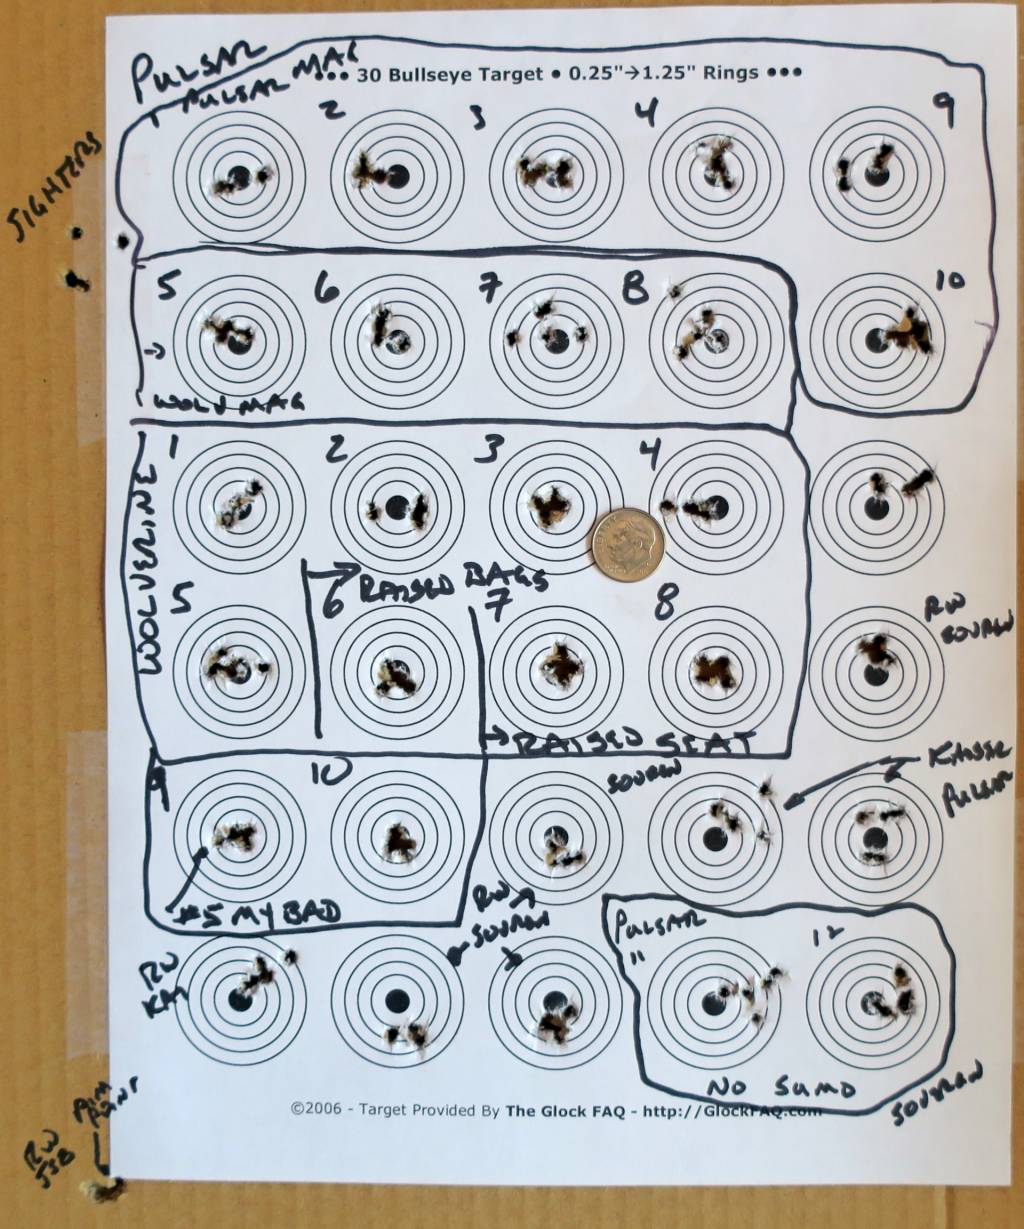 PULSAR
PULSAR MAG
••• 30 Bullseye Target • 0.25"→1.25" Rings •••
1 2 3 4 9
SIGHTERS
5 6 7 8 10
WOLV MAG
WOLVERINE
1 2 3 4
RAISED BAGS
5 6 7 8
RW
→ RAISED SEAT
9 10
6
PULSAR
#5 MY BAD
RW
PULSAR
11 12
RW
NO SUMO
©2006 - Target Provided By The Glock FAQ - http://GlockFAQ.com
AIM
POINT
RW
JSB